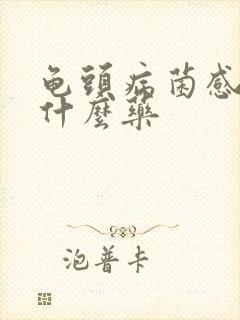 龟頭病菌感
什麼藥
泡普卡